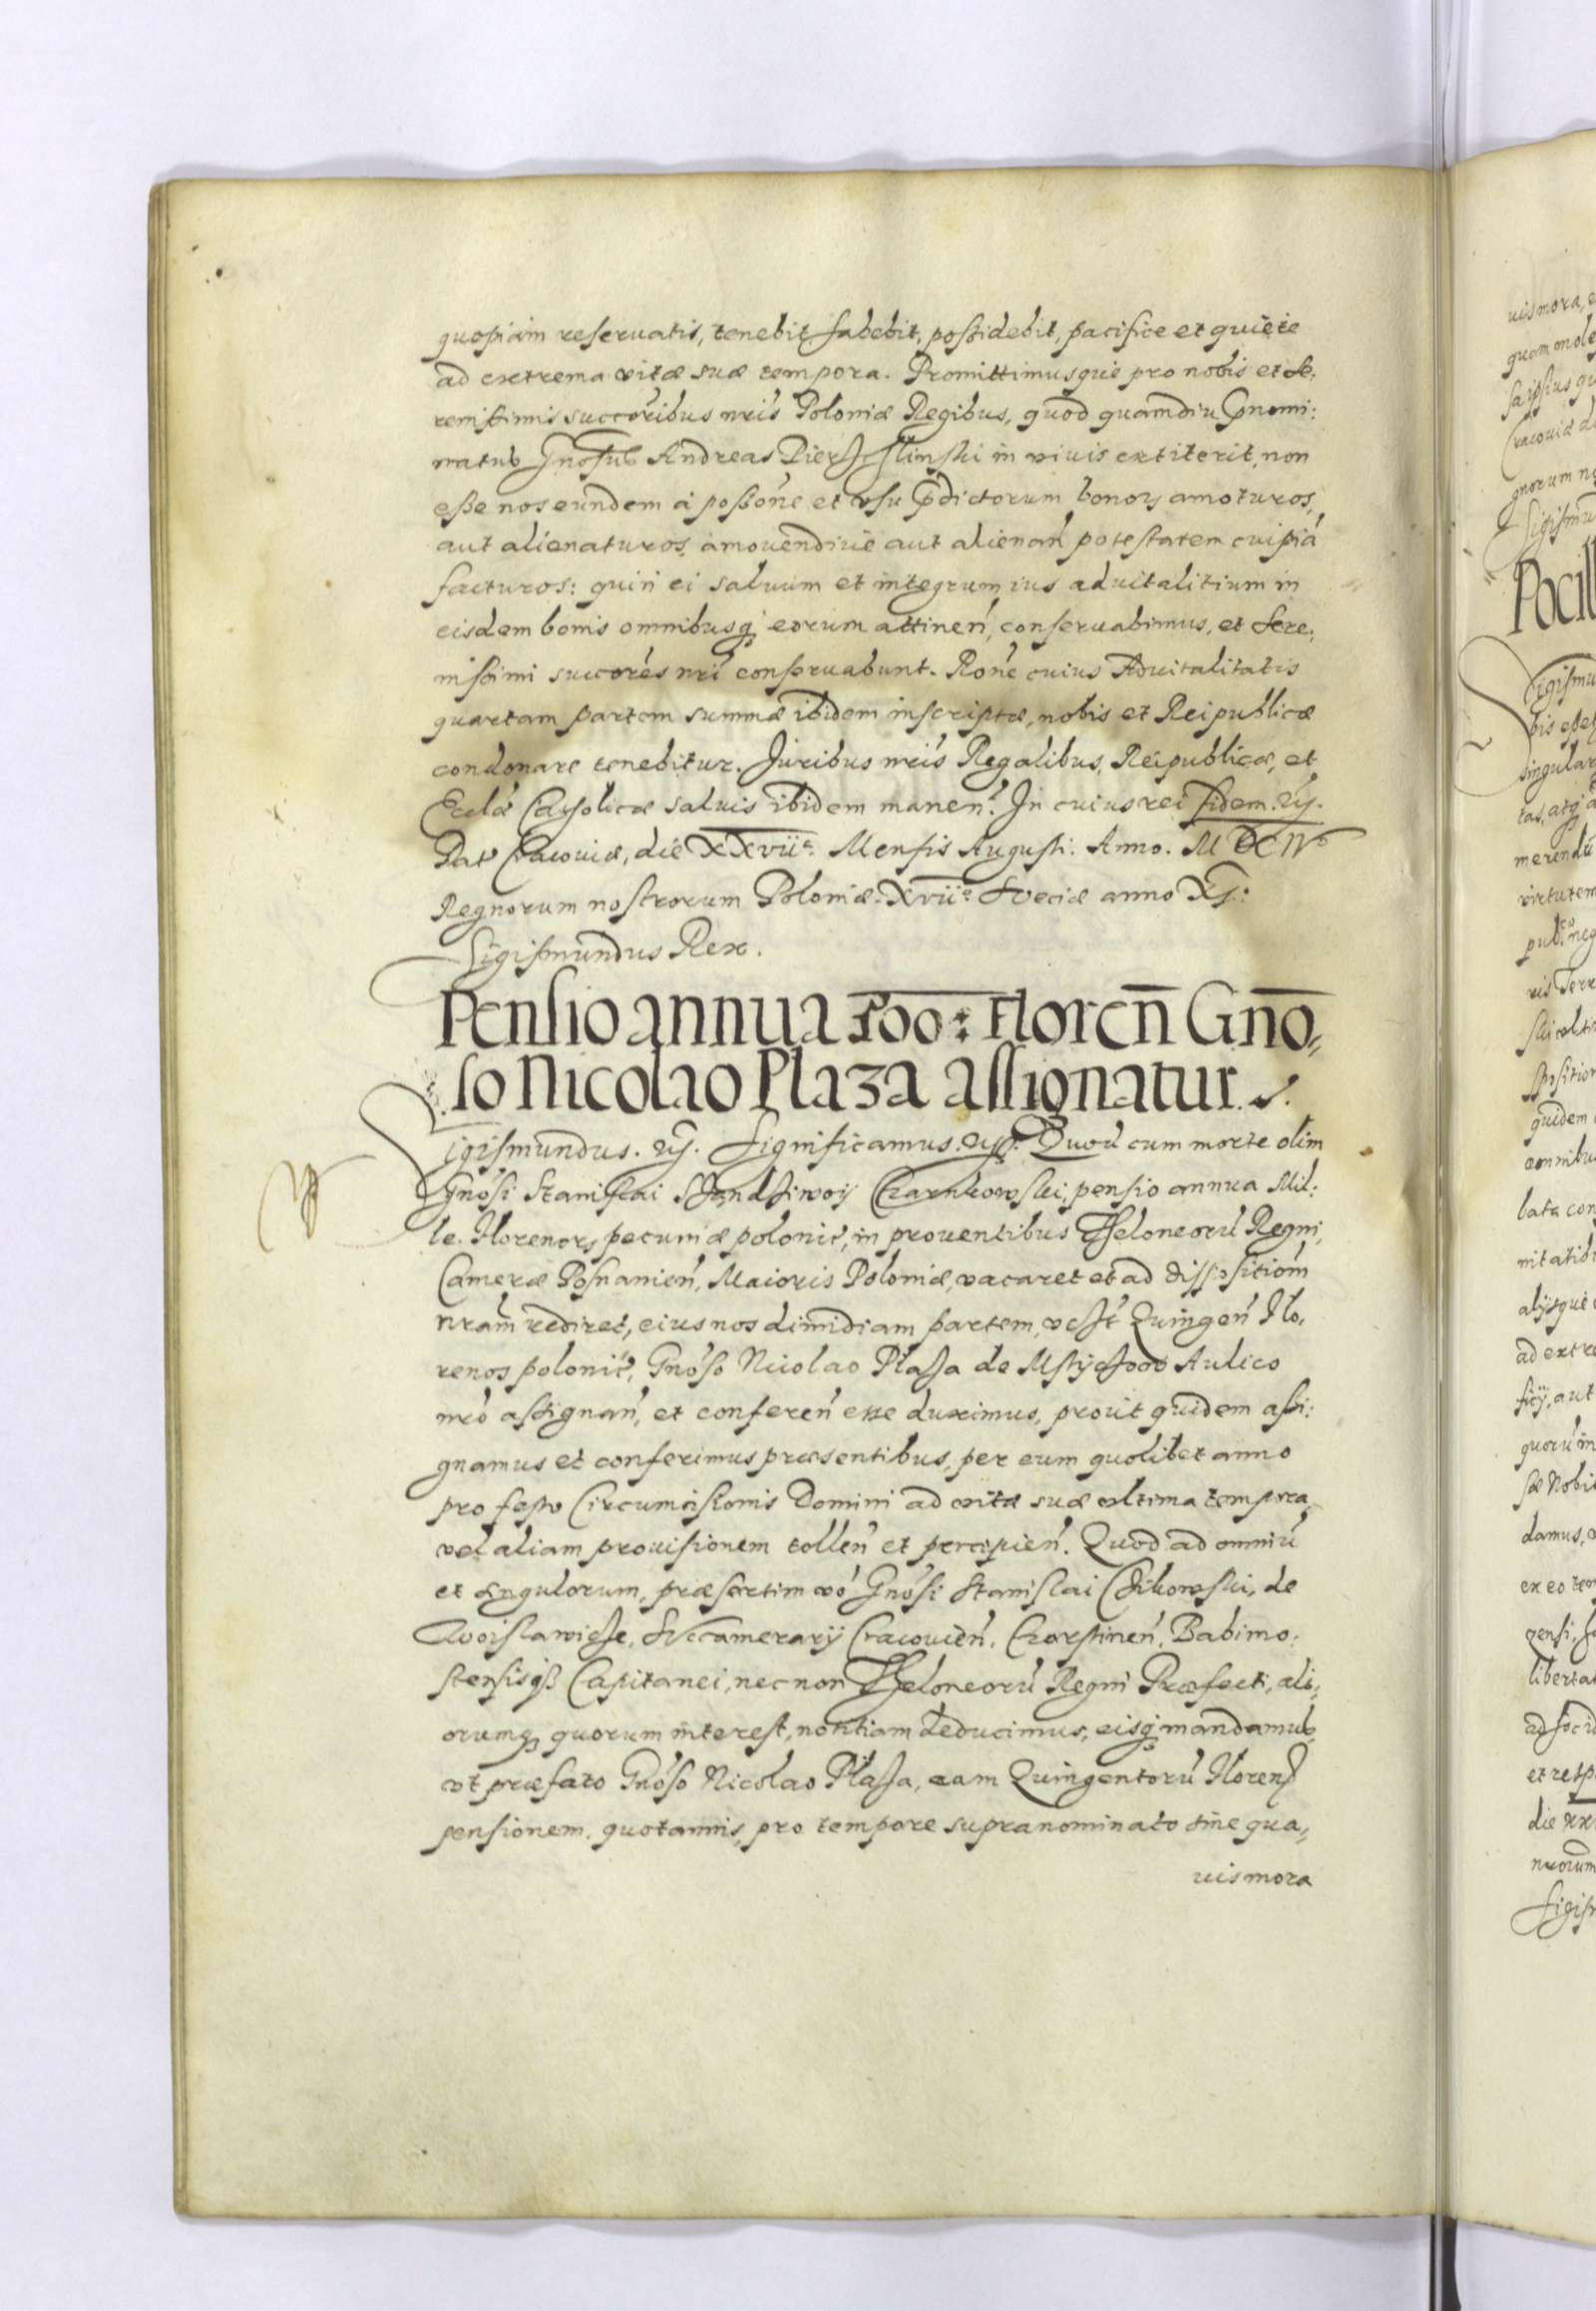 quopiam reseruatis, tenebit habebit, possidebit, pacifice et quiete
ad extrema vitæ suæ tempora. Promittimusque pro nobis et Se:
renissimis succoribus nris Poloniæ Regibus, quod quamdiu prnomi:
natus Gnosus Andreas in viuis extiterit, non
esse nos eundem à possone et vsu prdictorum bonorum amoturos,
aut alienaturos, amouendiue aut alienan potestatem cuipia
facturos: quin ei saluum et integrum ius aduitalitium in
eisdem bonis omnibusq eorum attinen, conseruabimus, et Sere:
nissimi succores nri conseruabunt. Rone cuius Aduitalitatis
quartam partem summæ ibidem inscriptæ, nobis et Reipublicæ
condonare tenebitur. Juribus nris Regalibus, Reipublicæ, et
Ecclæ Catholicæ saluis ibidem manen. In cuius rei fidem. etc.
Dat Cracouiæ, die XXvii. Mensis Augusti. Anno. M DC IV
Regnorum nostrorum Poloniæ. Xvii. Sveciæ anno XI.
Sigismundus Rex.
Pensio annua 500: Floren Gno,
so Nicolao Plaza assignatur.
Sigismundus. etc. Significamus. etc. Quod cum morte olim
Gnosi Stanislai Sendziwoy Czarnkowski, pensio annua Mil:
le Florenor pecuniæ polonic, in prouentibus Theloneoru Regni,
Cameræ Posnanien, Maioris Poloniæ, vacaret et ad dispositiom
nram rediret, eius nos dimidiam partem, vczt Quingen Flo,
renos polonic, Gnoso Nicolao Plaza de Mstyczow Aulico
nro assignan, et conferen esse duximus, prout quidem assi:
gnamus et conferimus præsentibus, per eum quolibet anno
pro festo Circumcisionis Domini ad vitæ suæ vltima tempora,
vel aliam prouisionem tollen et percipien. Quod ad omniu
et singulorum, præsertim vo Gnosi Stanislai Cikowski, de
Woislawicze, Svccamerarij Cracouien, Czorstinen, Babimo:
stensisq Capitanei, nec non Theloneoru Regni Præfecti, ali,
orumq quorum interest, notitiam deducimus, eisq mandamus,
vt præfato Gnoso Nicolao Plaza, eam Quingentoru Floren
pensionem quotannis, pro tempore supranominato sine qua,
uis mora